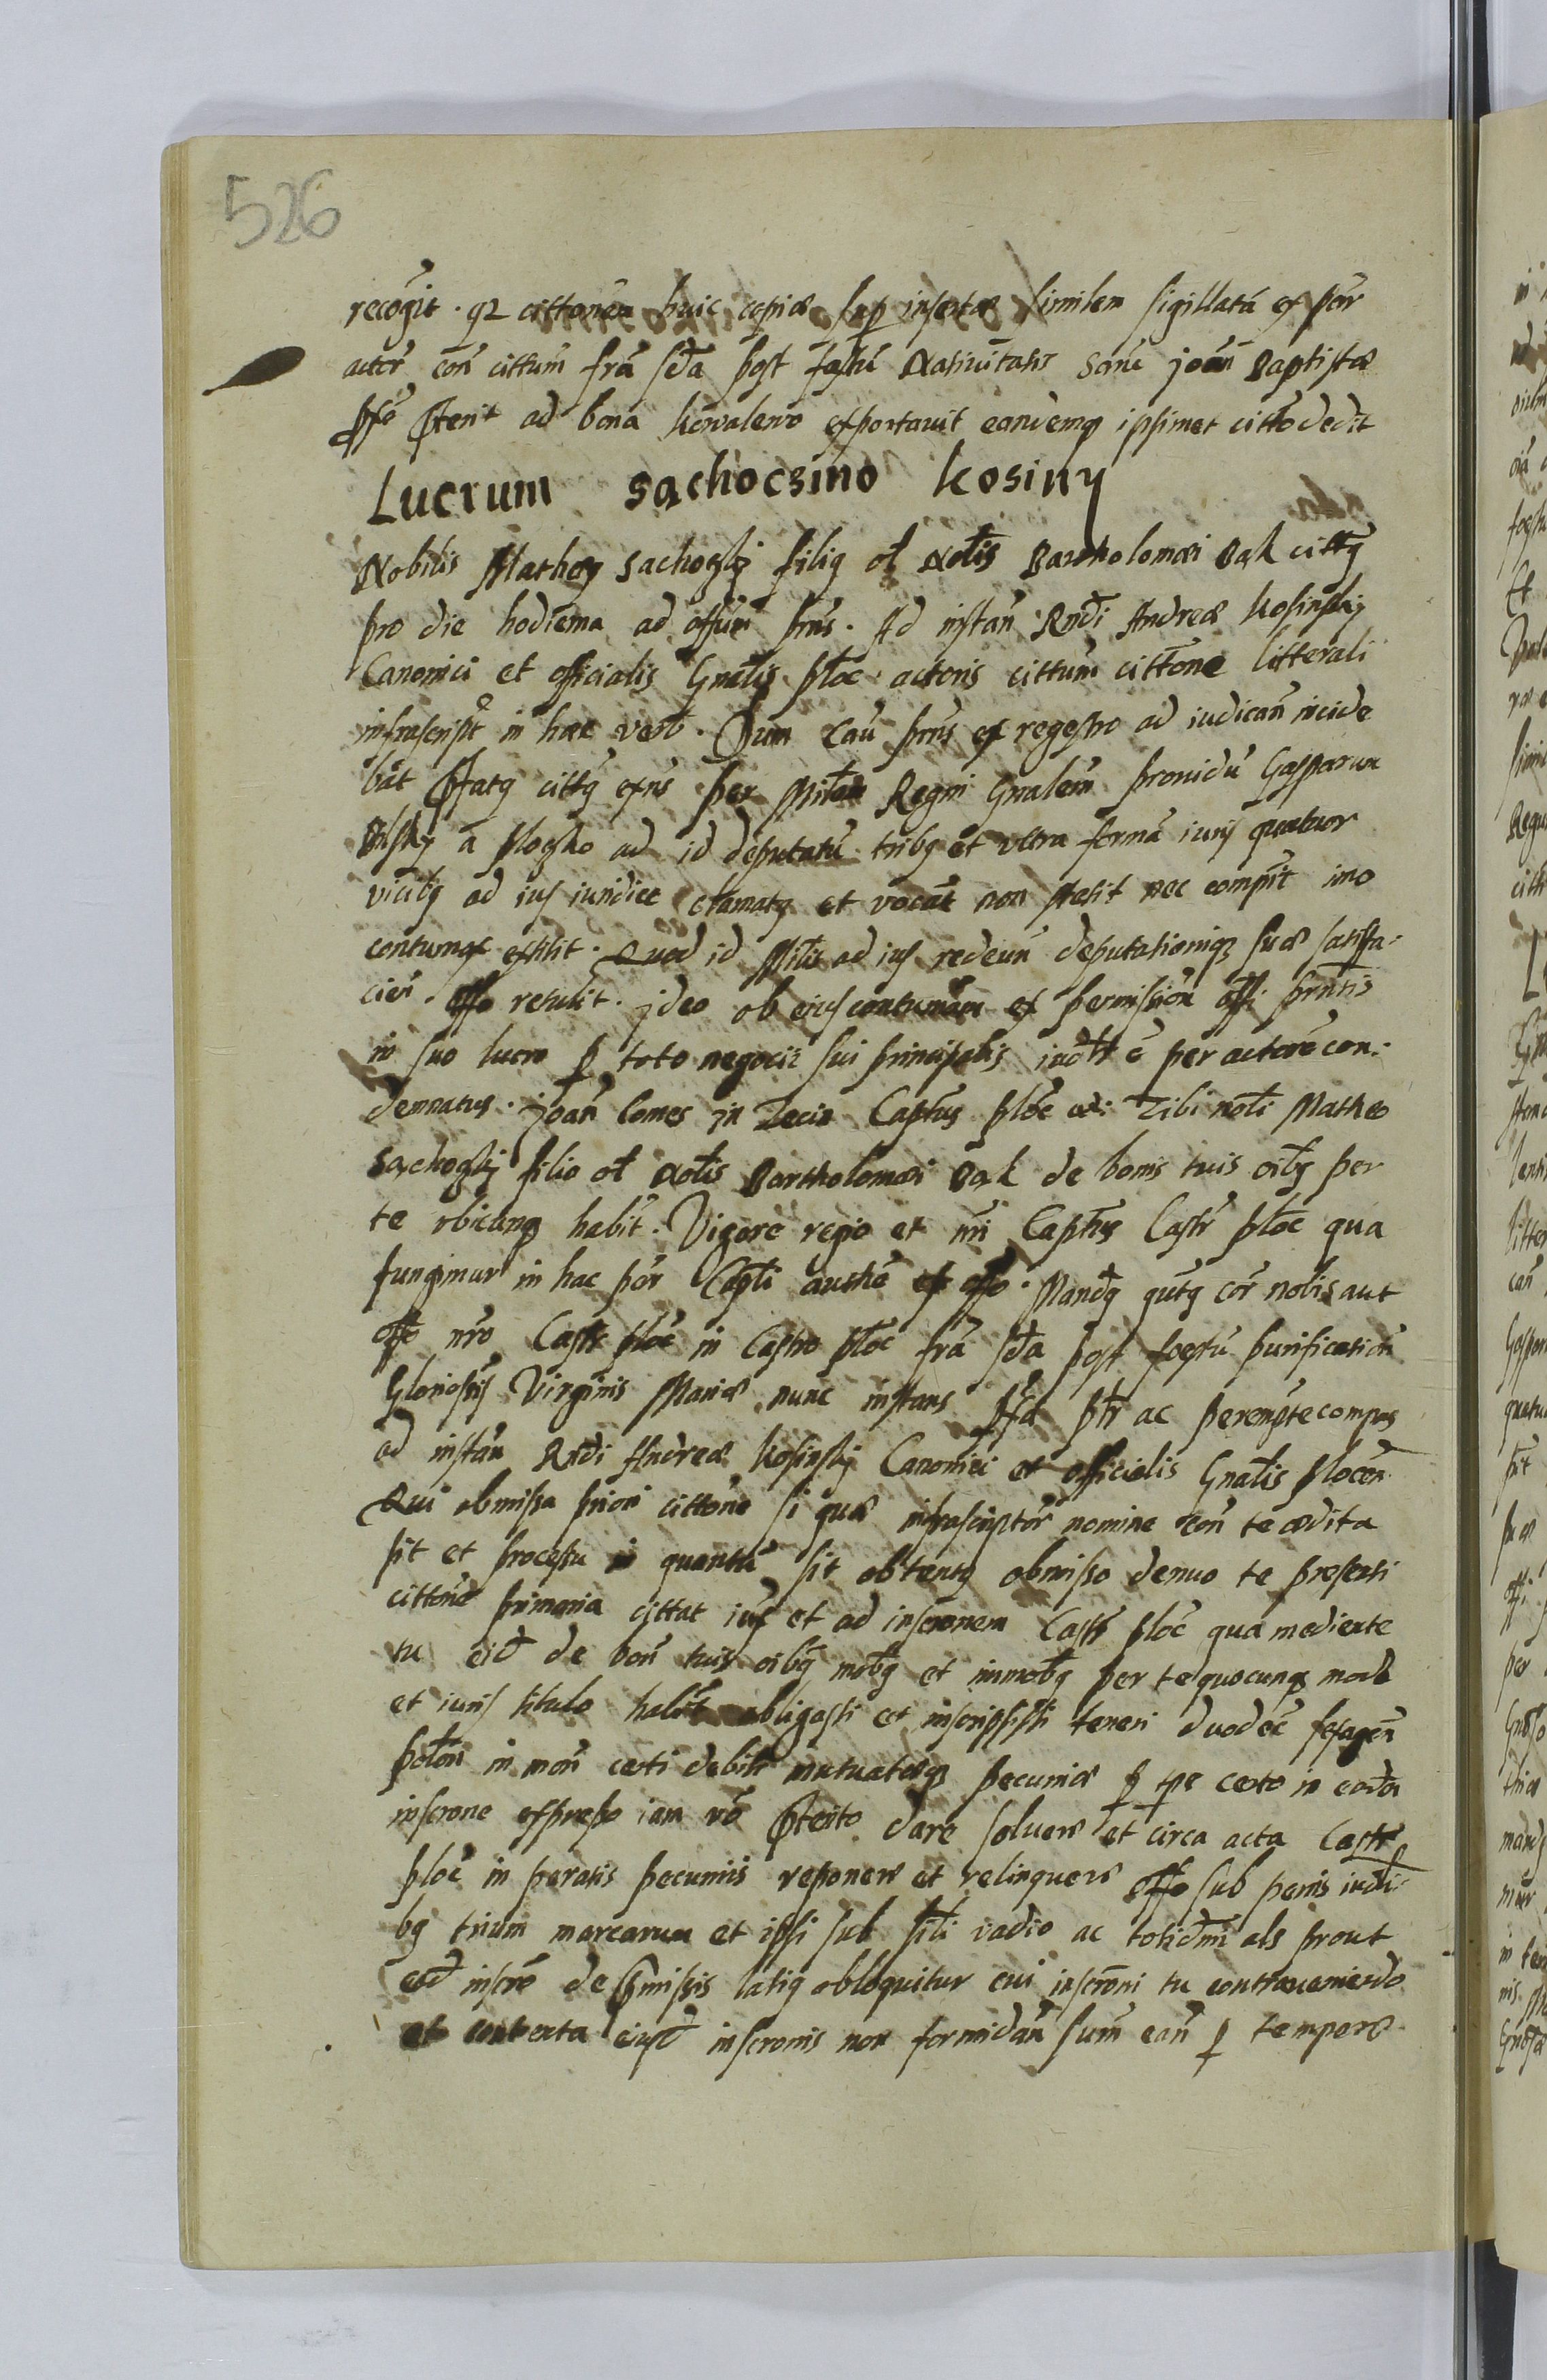 526
recogit. qz cittonem huic copiæ sup insertæ similem sigillatã ex par
actor con cittum fra sda post festũ Nativitatis Sanc joan Baptistæ
pterit ad bona kowalewo exportavit eandemq ipsimet citto dedit
Lucrum Sachocsino kosiny
Nobilis Matheq Sachoczkj filiq ol Nolis Bartholomæi Bąk cittq
pro die hodierna ad offum prns. Ad instan Rndi Andreæ kosinskj
Canonici et officialis Gnalis ploc actoris cittum cittone litterali
infrascript in hæc verb. Dum cau prns ex regestro ad iudican incide
bat pfatq cittq exns per Milem Regni Gnalem providũ Gasparum
a ploczko ad id deputatũ tribq et ultra formã iuris quatuor
vicibq ad ius iuridice clamatq et vocat non stetit nec compuit imo
contumax extitit. Quod id Milis ad ius rediens deputationiqz suæ satisfa-
cien. offo retulit. ideo ob eius contumam ex permissiõn offi prntis
in suo lucro p toto negocii sui principalis iudltr e per actorẽ con-
demnatus. joan Comes in Captus ploc Tibi noli Matheo
Sachoczkj filio ol Nolis Bartholomæi Bąk de bonis tuis oibq per
te ubicunq habit. Vigore regio et nri Captus Castr ploc qua
fungimur in hac par Capli authe ex offo. Mandq qutq cor nobis aut
offo nro Castr ploc in Castro ploc fra sda post festũ purificationis
Gloriosis Virginis Mariæ nunc instans ptr ac perempte compas
ad instan Rndi Andreæ kosinskj Canonici et officialis Gnalis plocen
Qui obmissa priori cittone si quæ infrascriptor nomine con te ædita
sit et processu in quantũ sit obtentq obmisso denuo te presenti
cittone primaria cittat iux et ad inscronem Castr ploc qua mediente
tu eid de bon tuis oibq mobq et inmobq per te quocunq modo
et iuris titulo habit obligasti et inscripsisti teneri duodec sexagen
polon in mon certi debiti mutuatæq pecuniæ p tpe certo in eadem
inscrone expresso iam vo pterito dare soluere et circa acta Castr
ploc in paratis pecuniis reponere et relinquere offo sub penis iudli-
bq trium marcarum et ipsi sub sili vadio ac totidmi als prout
ead inscro de pmissis latiq obloquitur cui inscroni tu contraveniendo
et contenta eiusd inscronis non formidan sum ean p tempore